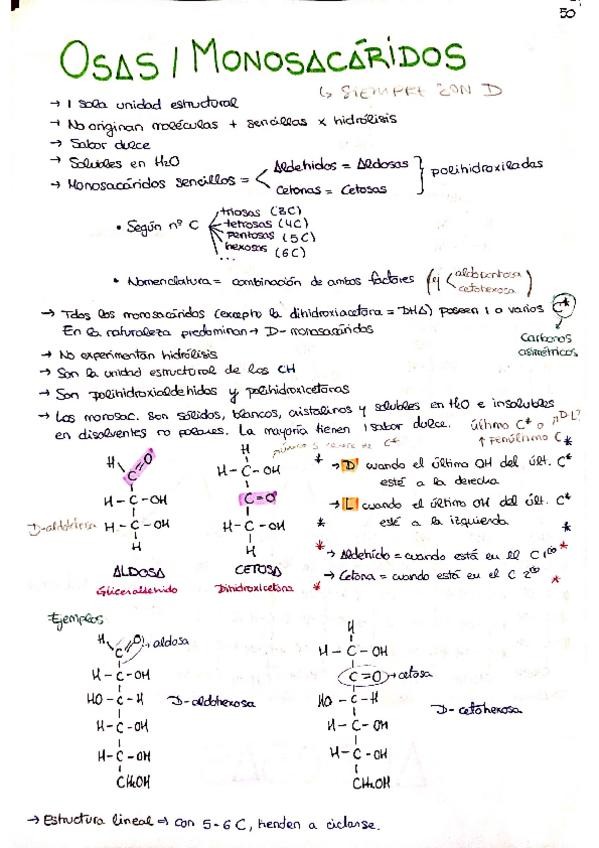 50
OSAS / MONOSACÁRIDOS
↳ SIEMPRE SON D
→ 1 sola unidad estructural
→ No originan moléculas + sencillas x hidrólisis
→ Sabor dulce
→ Solubles en H2O
→ Monosacáridos sencillos = Aldehidos = Aldosas
Cetonas = Cetosas
polihidroxiladas
• Según nº C
triosas (3C)
tetrosas (4C)
pentosas (5C)
hexosas (6C)
...
• Nomenclatura = combinación de ambos factores (ej aldopentosa
cetohexosa)
→ Todos los monosacáridos (excepto la dihidroxiacetona = DHA) poseen 1 o varios C*
En la naturaleza predominan → D-monosacáridos
Carbonos
asimétricos
→ No experimentan hidrólisis
→ Son la unidad estructural de los CH
→ Son polihidroxialdehidos y polihidroxicetonas
→ Los monosac. son sólidos, blancos, cristalinos y solubles en H2O e insolubles
en disolventes no polares. La mayoría tienen 1 sabor dulce.
último C* o
↑ Penúltimo C *
H
C=O
H-C-OH
H-C-OH
H
ALDOSA
Gliceraldehido
H
H-C-OH
C=O
H-C-OH
H
CETOSA
Dihidroxicetona
* → D cuando el último OH del últ. C*
esté a la derecha
→ L cuando el último OH del últ. C*
* esté a la izquierda *
* → Aldehído = cuando está en el C 1º *
→ Cetona = cuando está en el C 2º
* *
Ejemplos
H
C=O → aldosa
H-C-OH
HO-C-H
H-C-OH
H-C-OH
CH2OH
D-aldohexosa
H
H-C-OH
C=O → cetosa
HO-C-H
H-C-OH
H-C-OH
CH2OH
D-cetohexosa
→ Estructura lineal ⇒ con 5-6C, tienden a ciclarse.